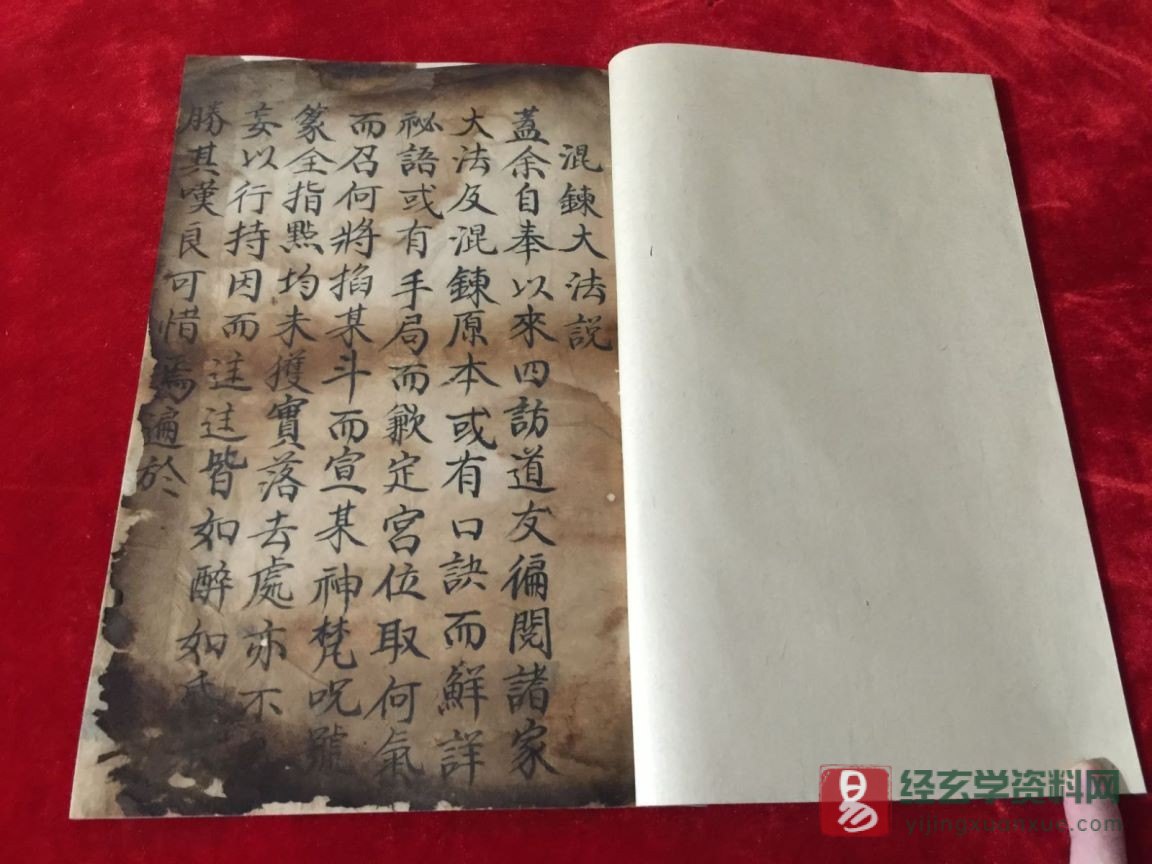 混鍊大法説
蓋余自奉以來四訪道友徧閱諸家
大法及混鍊原本或有口訣而鮮詳
祕語或有手局而歉定宮位取何氣
而召何將掐某斗而宣某神梵呪號
篆全指點均未獲實落去處亦不
妄以行持因而迬迬皆如醉如
勝其嘆良可惜焉遍於
易
经玄学资料网
yijingxuanxue.com